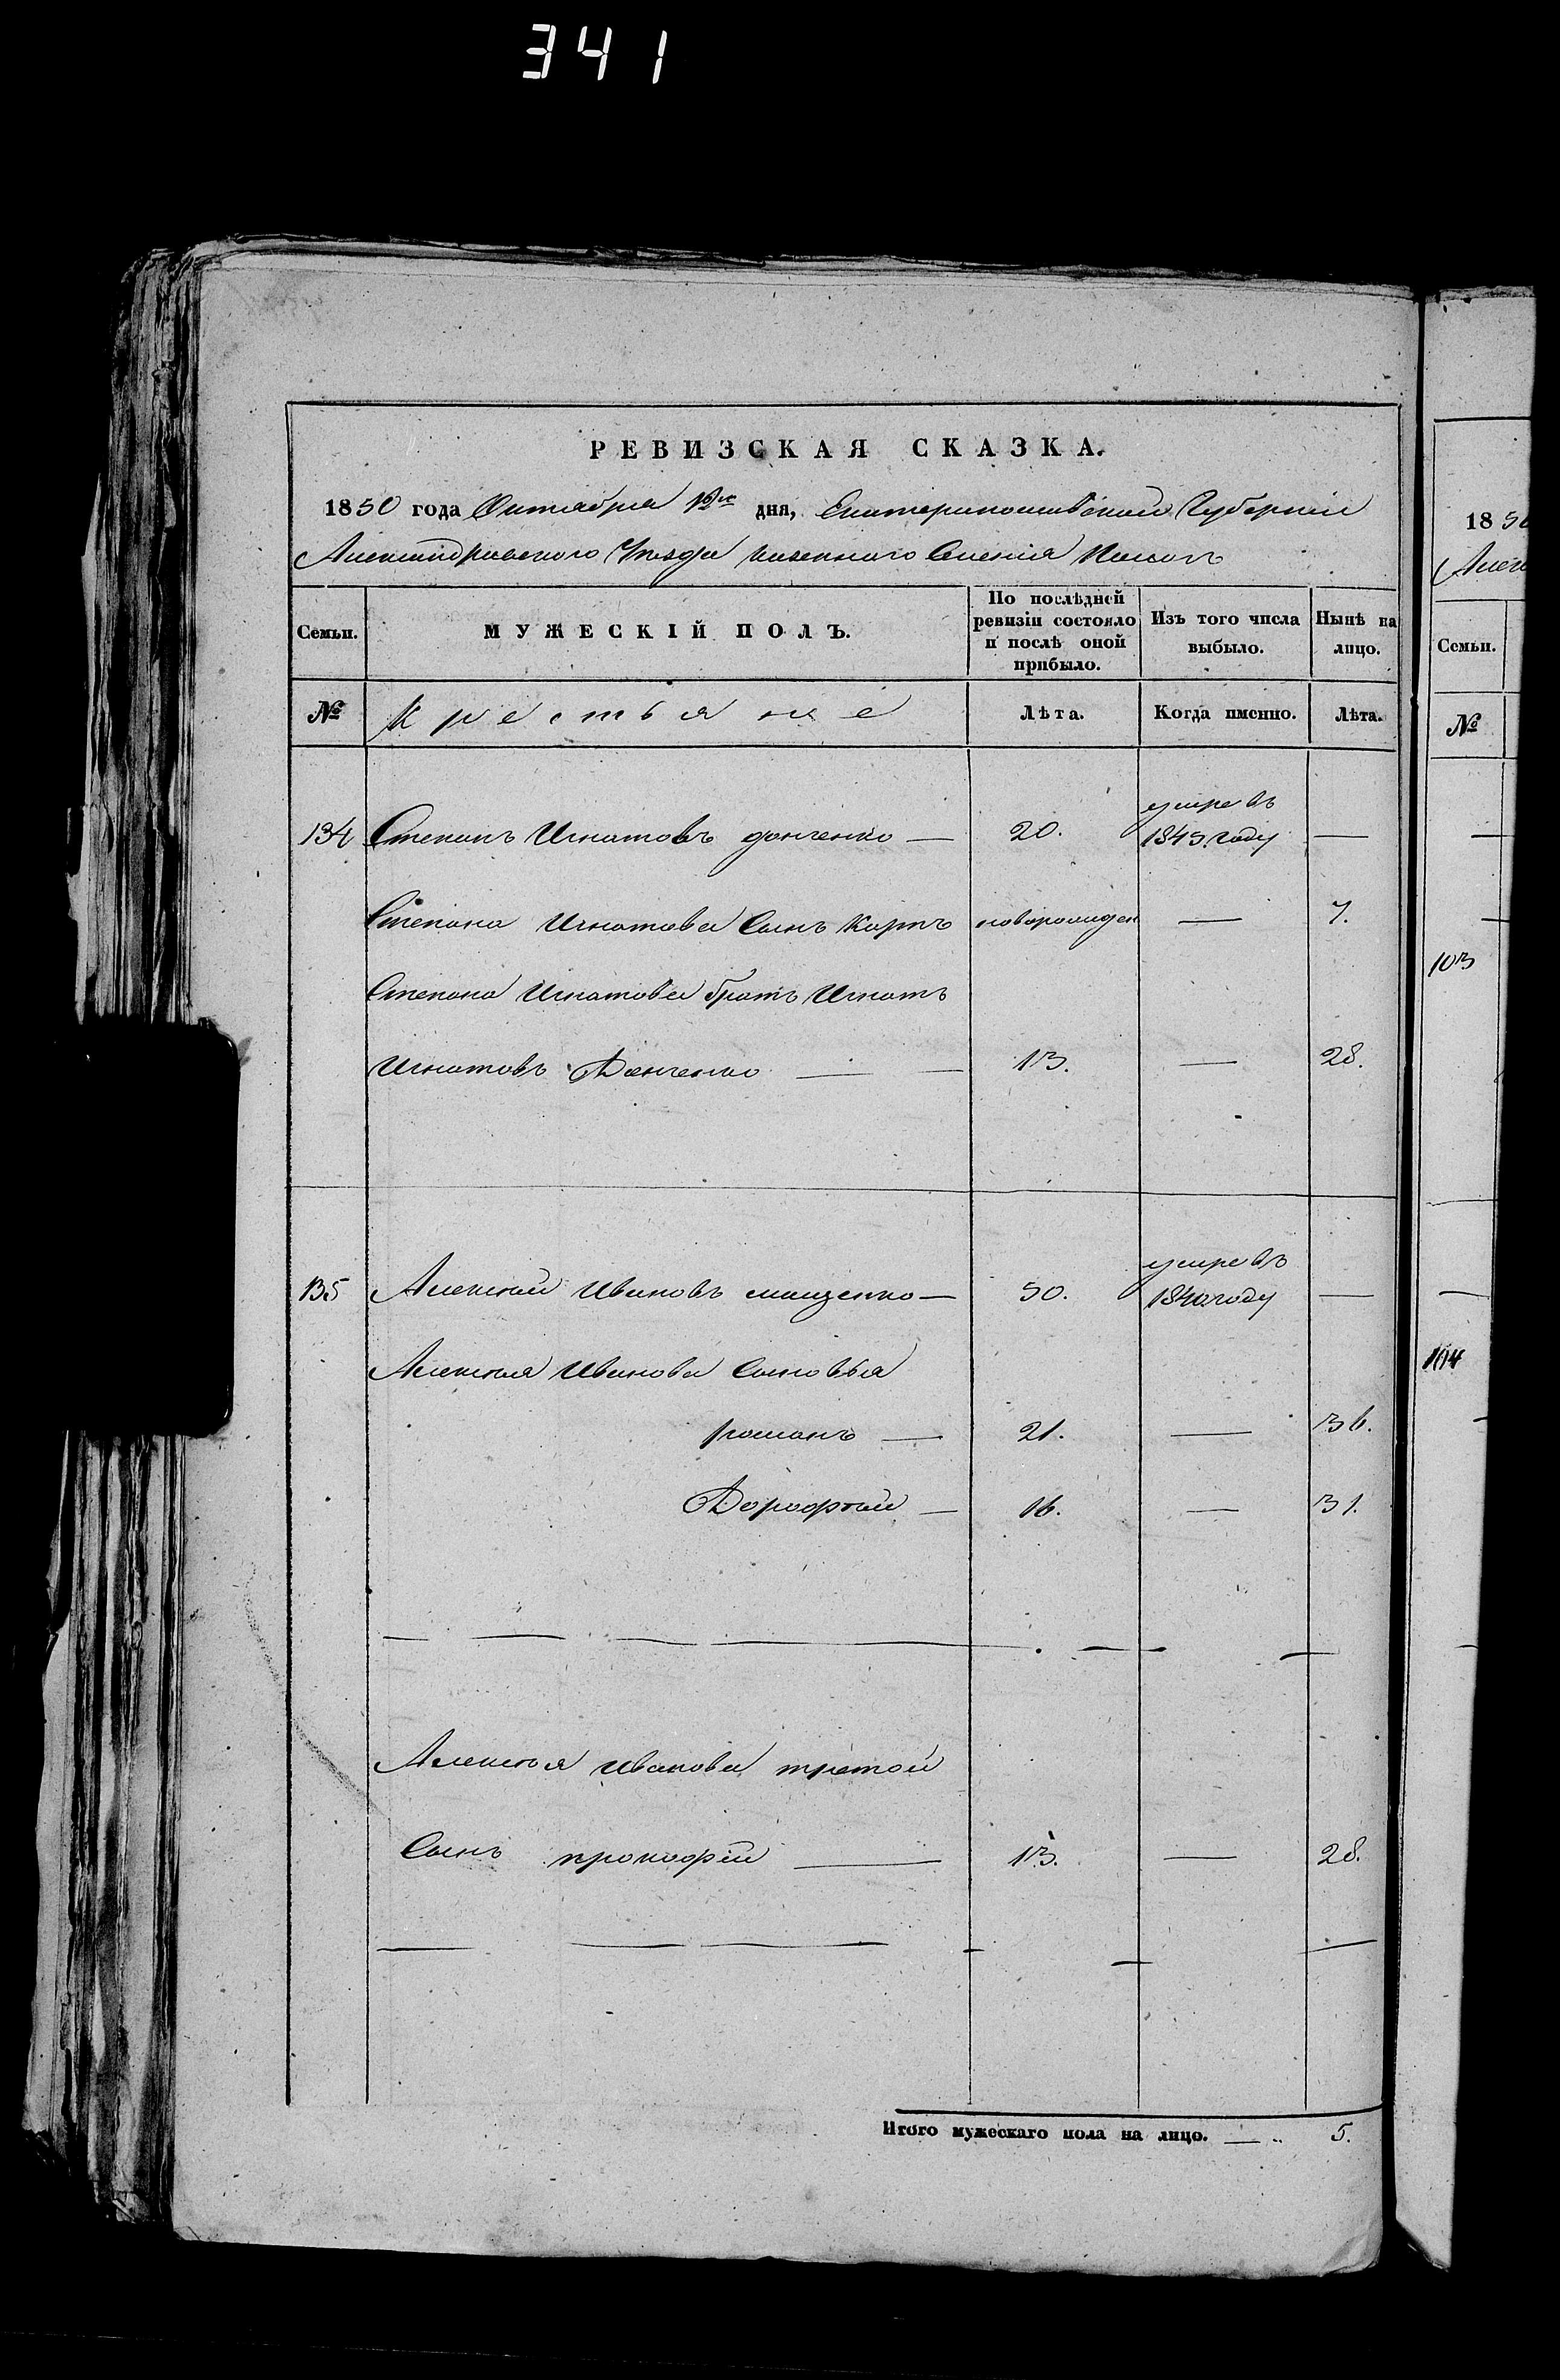 341
РЕВИЗСКАЯ СКАЗКА.
1850 года Октября дня, Екатеринославской Губерніи
Александровского Уѣзда казенного Селенія
Семьи. МУЖЕСКІЙ ПОЛЪ. По послѣдней ревизіи состояло и послѣ оной прибыло. Изъ того числа выбыло. Нынѣ на лицо.
№ Крестьяне Лѣта. Когда именно. Лѣта.
134 Степанъ Игнатовъ донченко — 20. умре въ 1843 году —
Степана Игнатова Сынъ Карпъ новорожден — 7.
Степана Игнатова братъ Игнатъ
Игнатовъ Донченко — — 13. — 28.
135 Алексѣй Ивановъ мищенко — 50. умре въ 1840 году —
Алексѣя Иванова Сыновья
романъ — 21. — 36.
Дорофѣй — 16. — 31.
Алексѣя Иванова третой
Сынъ прокофій — 13. — 28.
Итого мужескаго пола на лицо. — 5.
1850
Семьи.
№
103
104